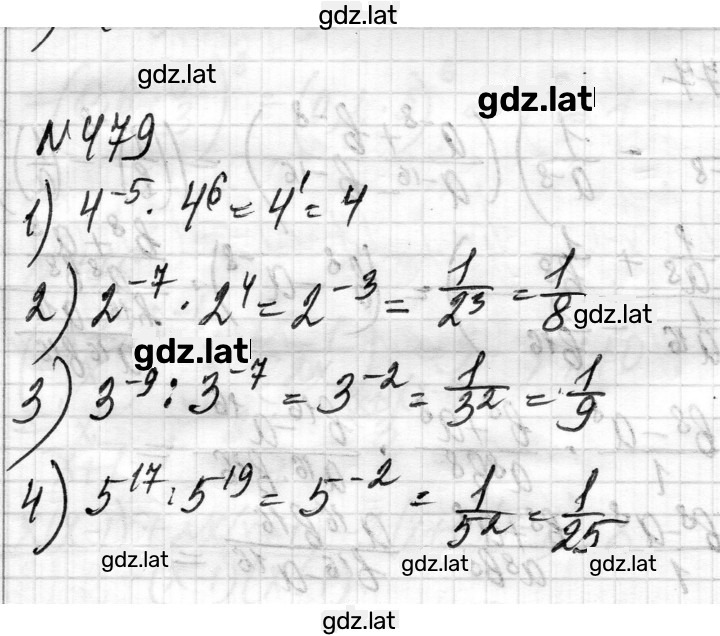 gdz.lat
gdz.lat
gdz.lat
№479
1) 4⁻⁵ · 4⁶ = 4¹ = 4
2) 2⁻⁷ · 2⁴ = 2⁻³ = 1/2³ = 1/8
gdz.lat
gdz.lat
3) 3⁻⁹ : 3⁻⁷ = 3⁻² = 1/3² = 1/9
4) 5¹⁷ : 5¹⁹ = 5⁻² = 1/5² = 1/25
gdz.lat
gdz.lat
gdz.lat
gdz.lat